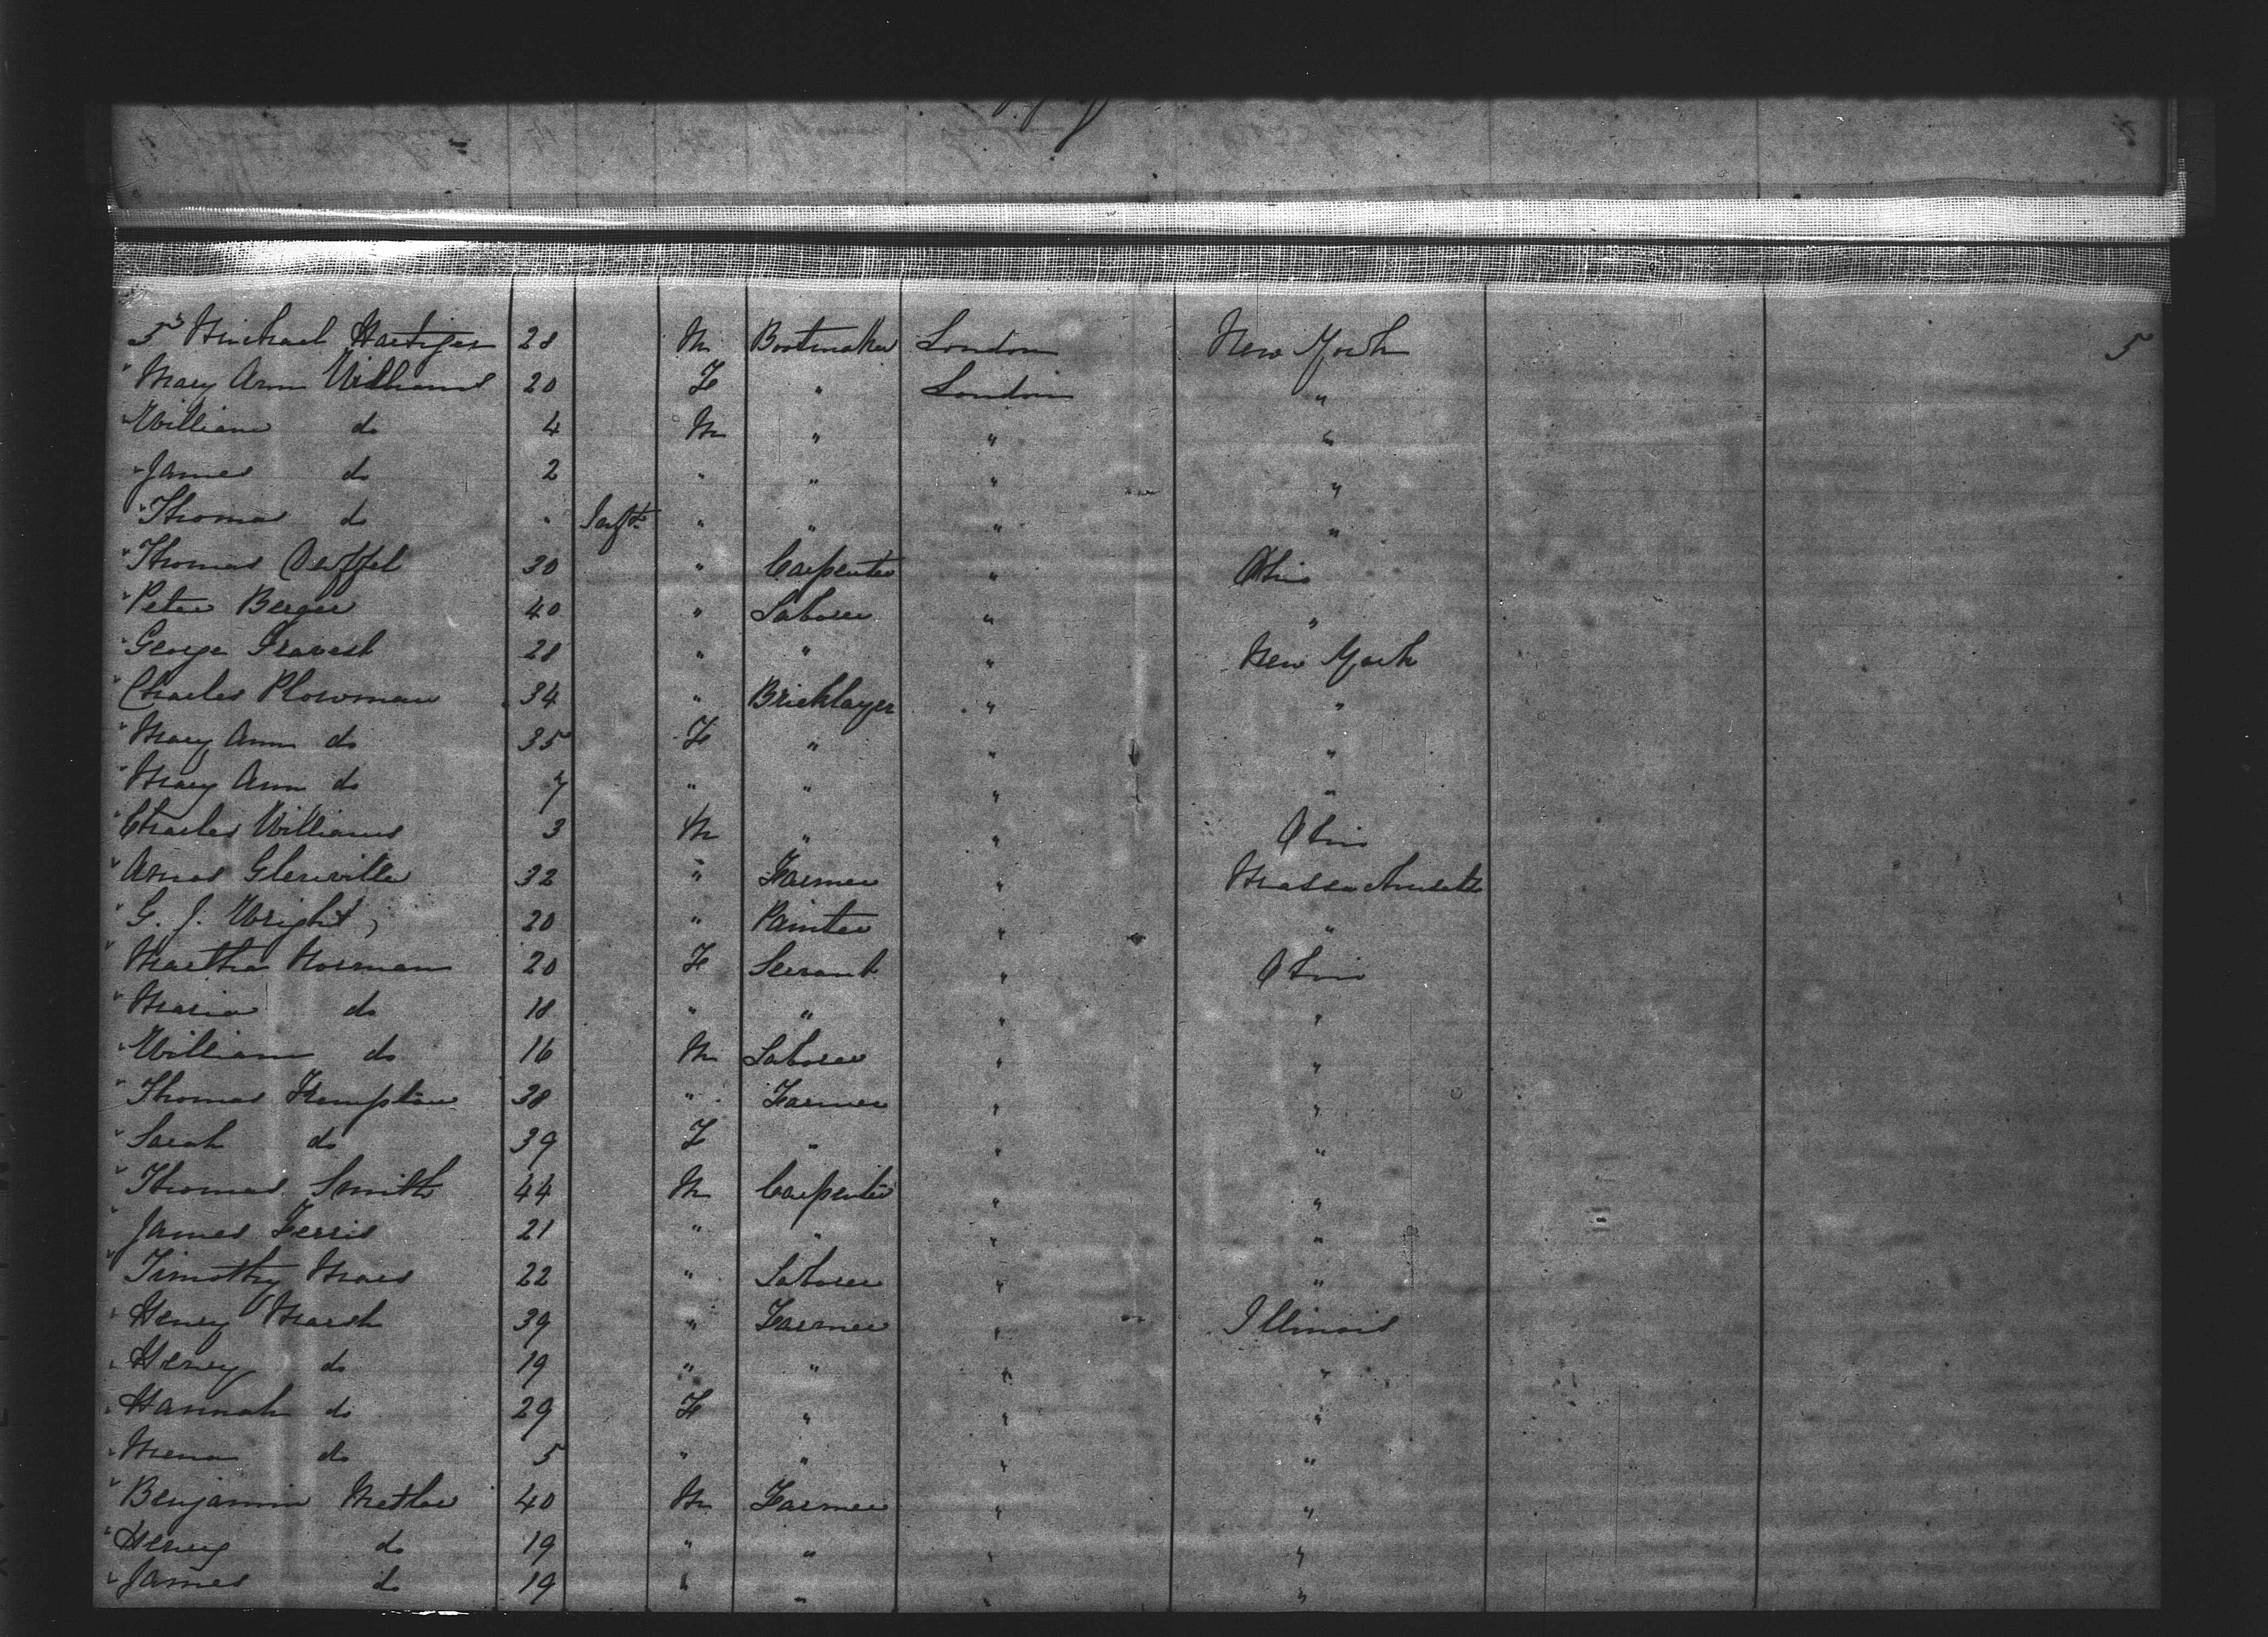 5 Michael Hartigen 28 M Bootmaker London New York 5
" Mary Ann Williams 20 F " London "
" William do 4 M " " "
" James do 2 " " " "
" Thomas do " Inft " " " "
" Thomas 30 " Carpenter " Ohio
" Peter Berger 40 " Laborer " "
" George 28 " " " New York
" Charles Plowman 34 " Bricklayer " "
" Mary Ann do 35 F " " "
" Mary Ann do 7 " " " "
" Charles Williams 3 M " " Ohio
" Amos Glenville 32 " Farmer " Massachusetts
" G. J. Wright 20 " Painter " "
" Martha Norman 20 F Servant " Ohio
" Maria do 18 " " " "
" William do 16 M Laborer " "
" Thomas Kempton 38 " Farmer " "
" Sarah do 39 F " " "
" Thomas Smith 44 M Carpenter " "
" James Ferris 21 " " " "
" Timothy 22 " Laborer " "
" Henry Marsh 39 " Farmer " Illinois
" Henry do 19 " " " "
" Hannah do 29 F " " "
" do 5 " " " "
" Benjamin 40 M Farmer " "
" Henry do 19 " " " "
" James do 19 " " " "